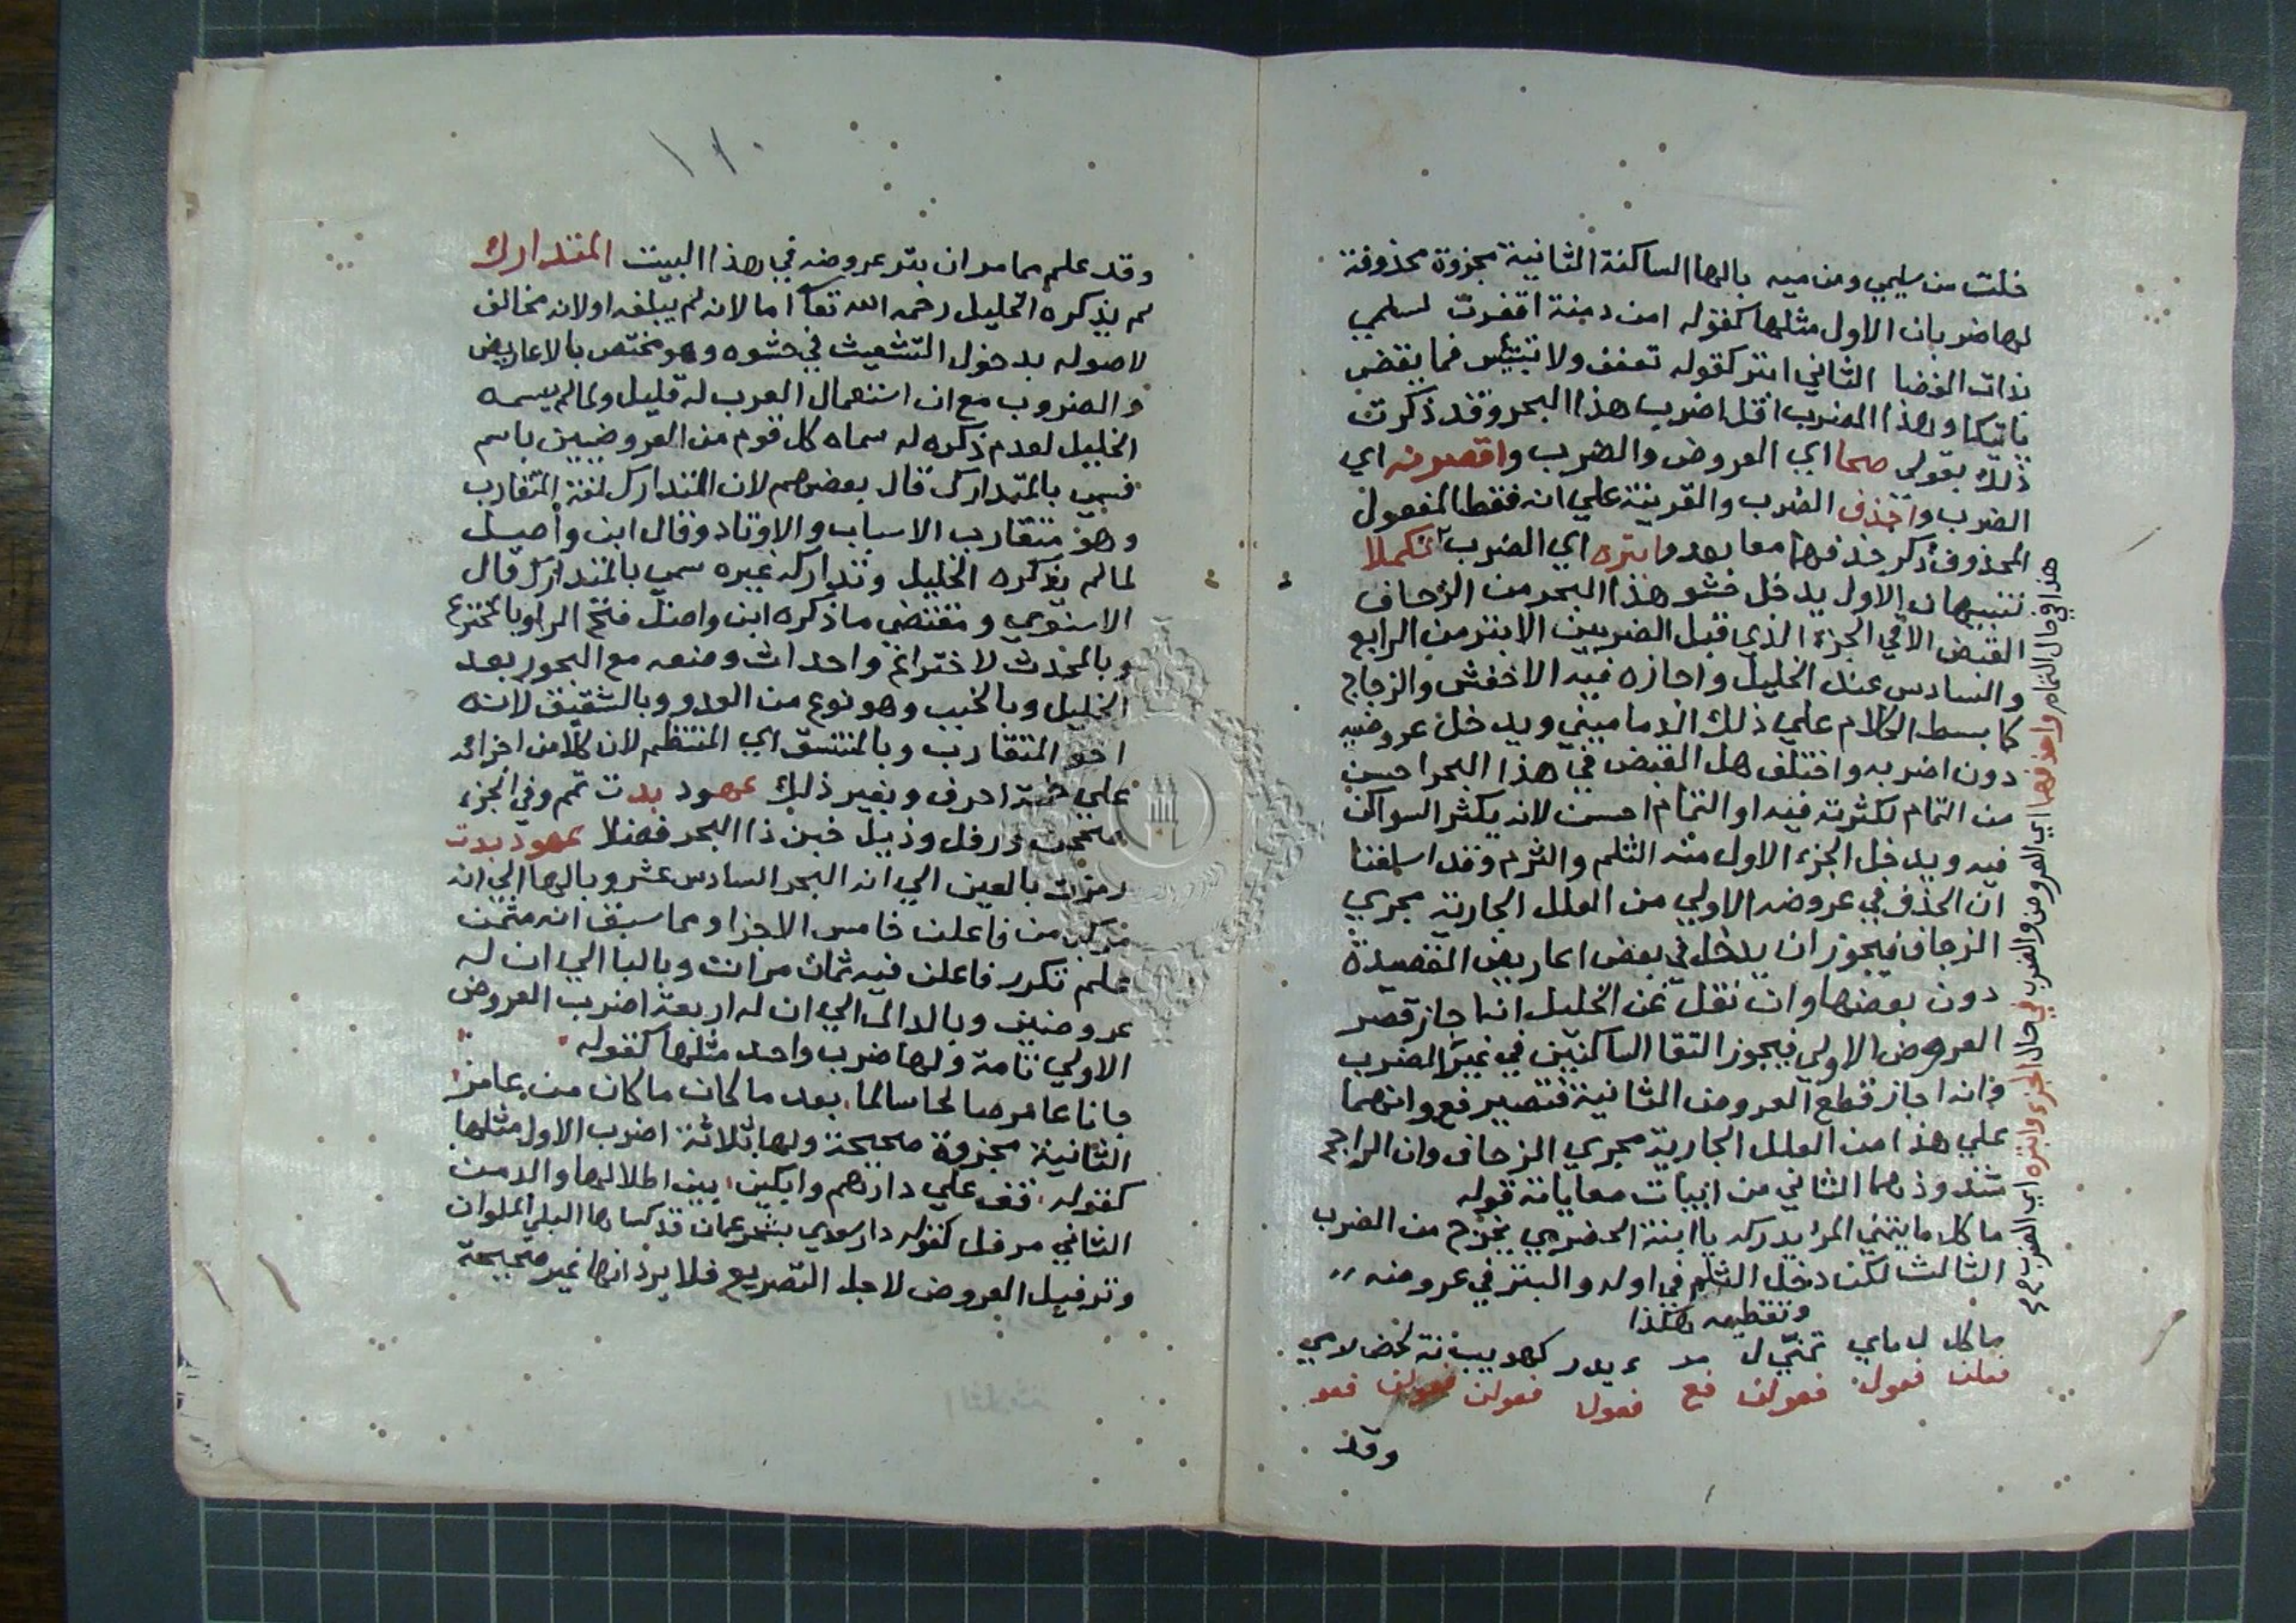 خلت من سليمي ومن ميه بالها الساكنة الثانية مجزوة محذوفة
لها ضربان الاول مثلها كقوله امن دمنة اقفرت لسلمي
بذات الغضا الثاني ابتر كقوله تعفف ولا تبتئس فما يقض
ياتيكا وهذا الضرب اقل اضرب هذا البحر وقد ذكرت
ذلك بقولي صحا اي العروض والضرب واقصرنه اي
الضرب واحذف الضرب والقرينة علي انه فقط المفعول
المحذوف ذكر حذفهما معا بعد وابتره اي الضرب تكملا
تنبيهان الاول يدخل حشو هذا البحر من الزحاف
القبض الا في الجزء الذي قبل الضربين الابتر من الرابع
والسادس عند الخليل واجازه فيه الاخفش والزجاج
كما بسط الكلام علي ذلك الدماميني ويدخل عروضيه
دون اضربه واختلف هل القبض في هذا البحر احسن
من التمام لكثرته فيه او التمام احسن لانه يكثر السواكن
فيه ويدخل الجزء الاول منه الثلم والثرم وقد اسلفنا
ان الحذف في عروضه الاولي من العلل الجارية مجري
الزحاف فيجوز ان يدخل في بعض اعاريض القصيدة
دون بعضها وان نقل عن الخليل انه اجاز قصر
العروض الاولي فيجوز التقا الساكنين في غير الضرب
وانه اجاز قطع العروض الثانية فتصير فع وانهما
علي هذا من العلل الجارية مجري الزحاف وان الراجح
شذوذهما الثاني من ابيات معاياته قوله
ما كل ما يتمني المرء يدركه يا ابنة الحضرمي يخرج من الضرب
الثالث لكن دخل الثلم في اوله والبتر في عروضه
وتقطيعه هكذا
ما كل ل ماي تمني ل مر ء يدر كهو يبنة لحضر مي
فعلن فعول فعولن فع فعول فعولن فعولن فعو
وقد
هذا في حال التمام واحذفهما اي العروض والضرب في حال الجزء وابتره اي الضرب
وقد علم مما مر ان بتر عروضه في هذا البيت المتدارك
لم يذكره الخليل رحمه الله تعا اما لانه لم يبلغه او لانه مخالف
لاصوله بدخول التشعيث في حشوه وهو مختص بالاعاريض
والضروب مع ان استعمال العرب له قليل ولما لم يسمه
الخليل لعدم ذكره له سماه كل قوم من العروضيين باسم
فسمي بالمتدارك قال بعضهم لان المتدارك لغة المتقارب
وهو متقارب الاسباب والاوتاد وقال ابن واصل
لما لم يذكره الخليل وتداركه غيره سمي بالمتدارك قال
الاسنوي ومقتضي ما ذكره ابن واصل فتح الرا وبالمخترع
وبالمحدث لاختراع واحداث وضعه مع البحور بعد
الخليل وبالخبب وهو نوع من العدو وبالشقيق لانه
اخو المتقارب وبالمتسق اي المنتظم لان كلا من اجزائه
علي خمسة احرف وبغير ذلك عهود بدت تم وفي الجزء
صححت ورفل وذيل خبن ذا البحر فضلا عهود بدت
رمزت بالعين الي انه البحر السادس عشر وبالها الي انه
مركب من فاعلن خامس الاجزا ومما سبق انه مثمن
علم تكرر فاعلن فيه ثمان مرات وبالبا الي ان له
عروضين وبالدال الي ان له اربعة اضرب العروض
الاولي تامة ولها ضرب واحد مثلها كقوله
جانا عامر صالحا سالما بعد ما كان ما كان من عامر
الثانية مجزوة صحيحة ولها ثلاثة اضرب الاول مثلها
كقوله قف علي دارهم وابكين بين اطلالها والدمن
الثاني مرفل كقوله دار سعدي بشحر عمان قد كساها البلي الملوان
وترفيل العروض لاجل التصريع فلا يرد انها غير صحيحة